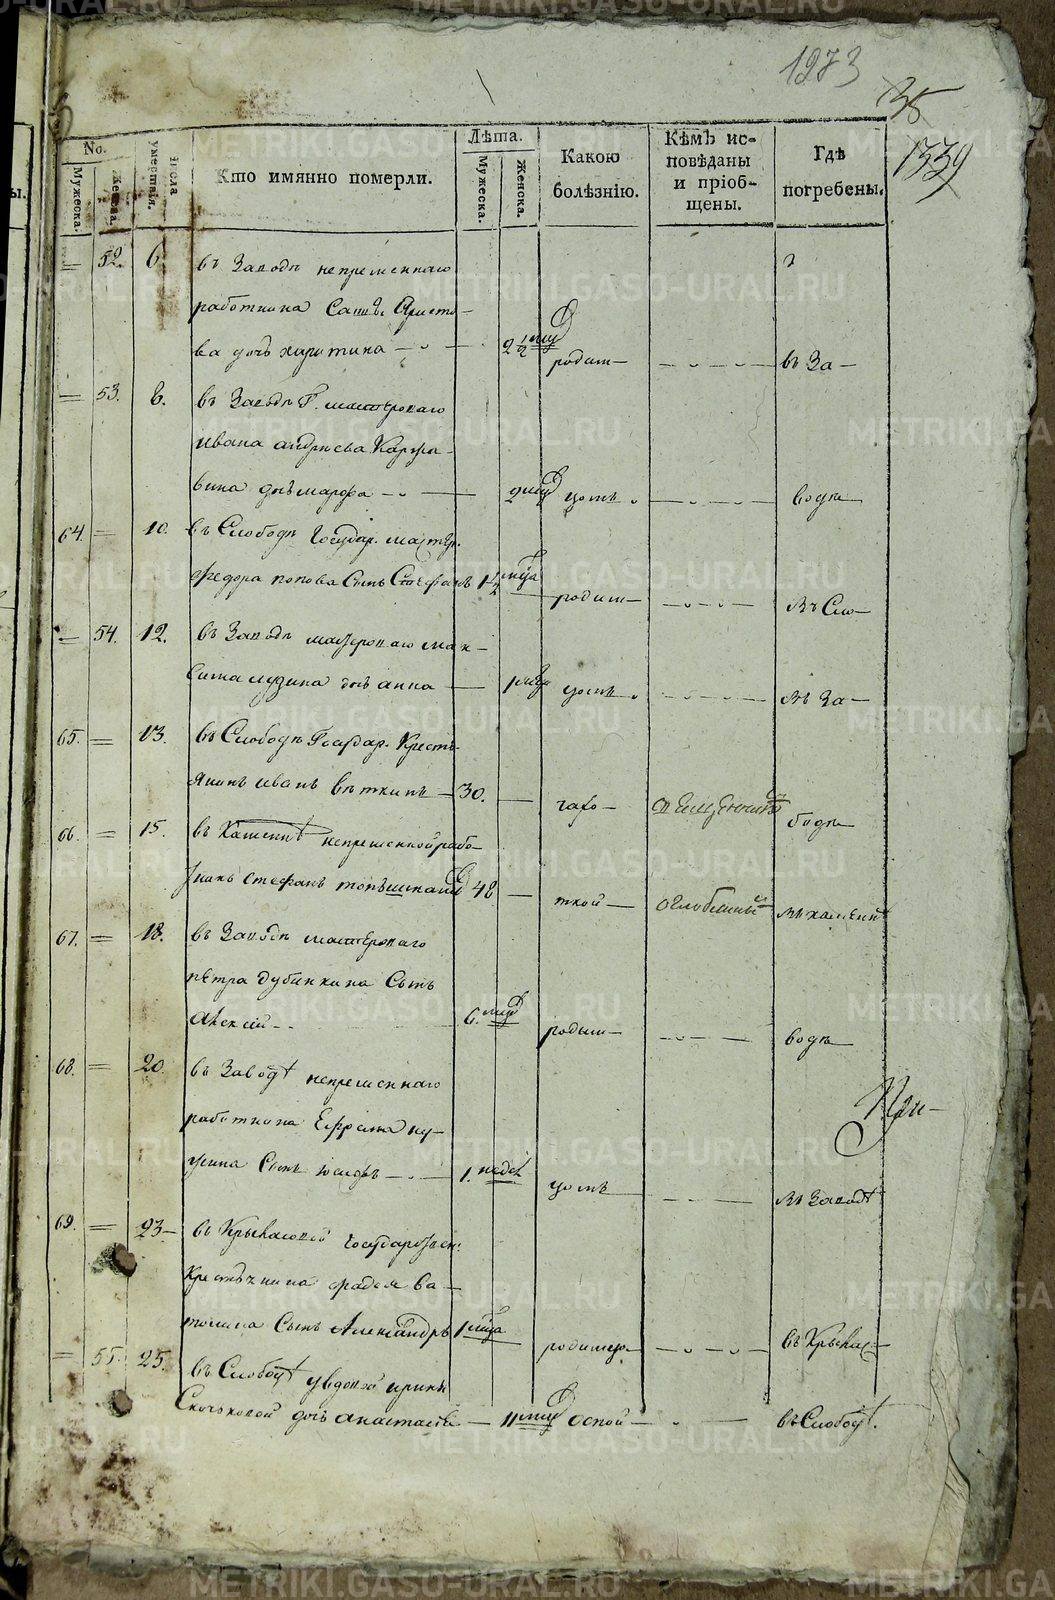 1273
35
1339
No.
Мужеска.
Женска.
Числа умертвія.
Кто имянно померли.
Лѣта.
Мужеска.
Женска.
Какою болѣзнію.
Кѣмъ исповѣданы и пріобщены.
Гдѣ погребены.
52. 6. въ Заводѣ непременнаго
работника Саввы Аристо-
ва дочь харитина 2 1/2 мцд родим- въ За-
53. 8. въ Заводѣ Г. мастероваго
ивана андреева Каржа-
вина дочь марфа 2 мцд водѣ
64. 10. въ Слободѣ Государ. мастер.
федора попова Сынъ Стефанъ 1 1/2 мца родим- въ Сло-
54. 12. въ Заводѣ мастероваго мак-
сима лузина дочь анна 1 мца въ За-
65. 13. въ Слободѣ Государ. Кресть-
янинъ иванъ вяткинъ 30. чахо- священникъ бодѣ
66. 15. въ Каменкѣ непременной рабо-
тникъ стефанъ 48 ткой оглоблинъ въ каменкѣ
67. 18. въ Заводѣ мастероваго
петра дубинкина Сынъ
Алексѣй 6. мцд родим- водѣ
68. 20. въ Заводѣ непременнаго
работника Ефрема ку-
Сынъ 1. недел въ Заводѣ
При-
69. 23 въ Крыласовой государствен.
Крестьянина фадея Ва-
Сынъ Александръ 1 мца родимца въ Крылас.
55. 25. въ Слободѣ у вдовой ирины
дочь анастасія 11 мцд оспой въ Слободѣ.
METRIKI.GASO-URAL.RU